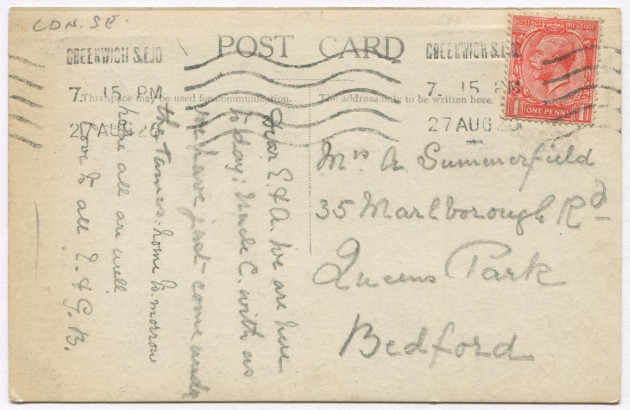 LDN. S.E.
POST CARD
GREENWICH S.E.10
7. 15 PM
27 AUG 20
GREENWICH S.E.10
7. 15 PM
27 AUG 20
POSTAGE REVENUE
ONE PENNY
This space may be used for communication.
The address only to be written here.
Dear E & A. We are here
to day. Uncle C. with us
we have just come under
the Tames. home to-morrow
hope all are well
Love to all E. & G. B.
Mrs A. Summerfield
35 Marlborough Rd
Queens Park
Bedford.